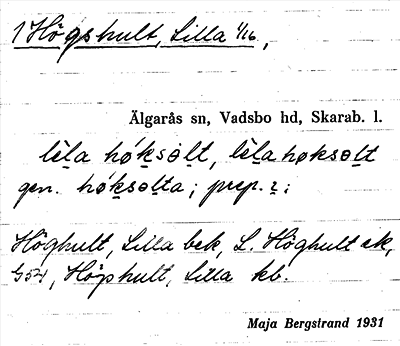 1 Högshult, Lilla 1/16,
Älgarås sn, Vadsbo hd, Skarab. l.
lèla hǿksəlt, lèlahøksəlt
gen. hǿksəlta; prep. i;
Höghult, Lilla bek, L. Höghult ek,
G54, Högshult, Lilla kb.
Maja Bergstrand 1931